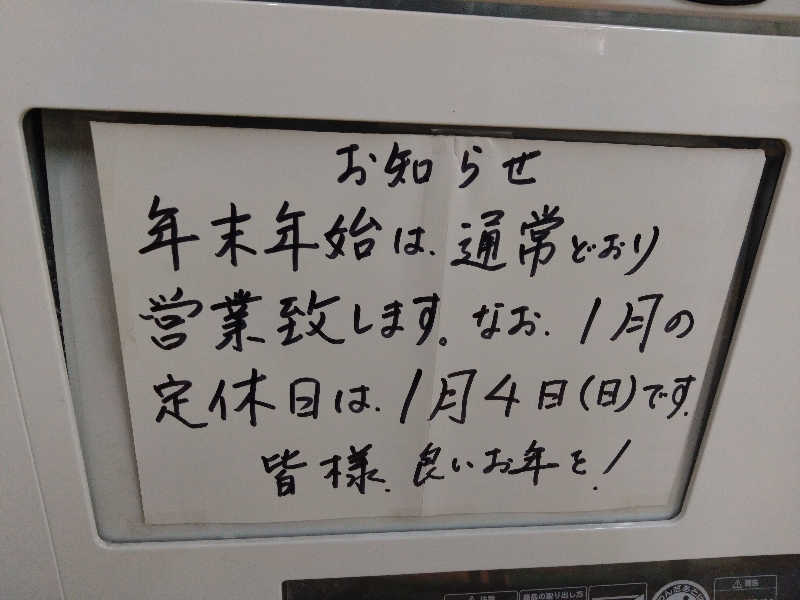 お知らせ
年末年始は、通常どおり
営業致します。なお、1月の
定休日は、1月4日(日)です。
皆様、良いお年を!
商品の取り出し方